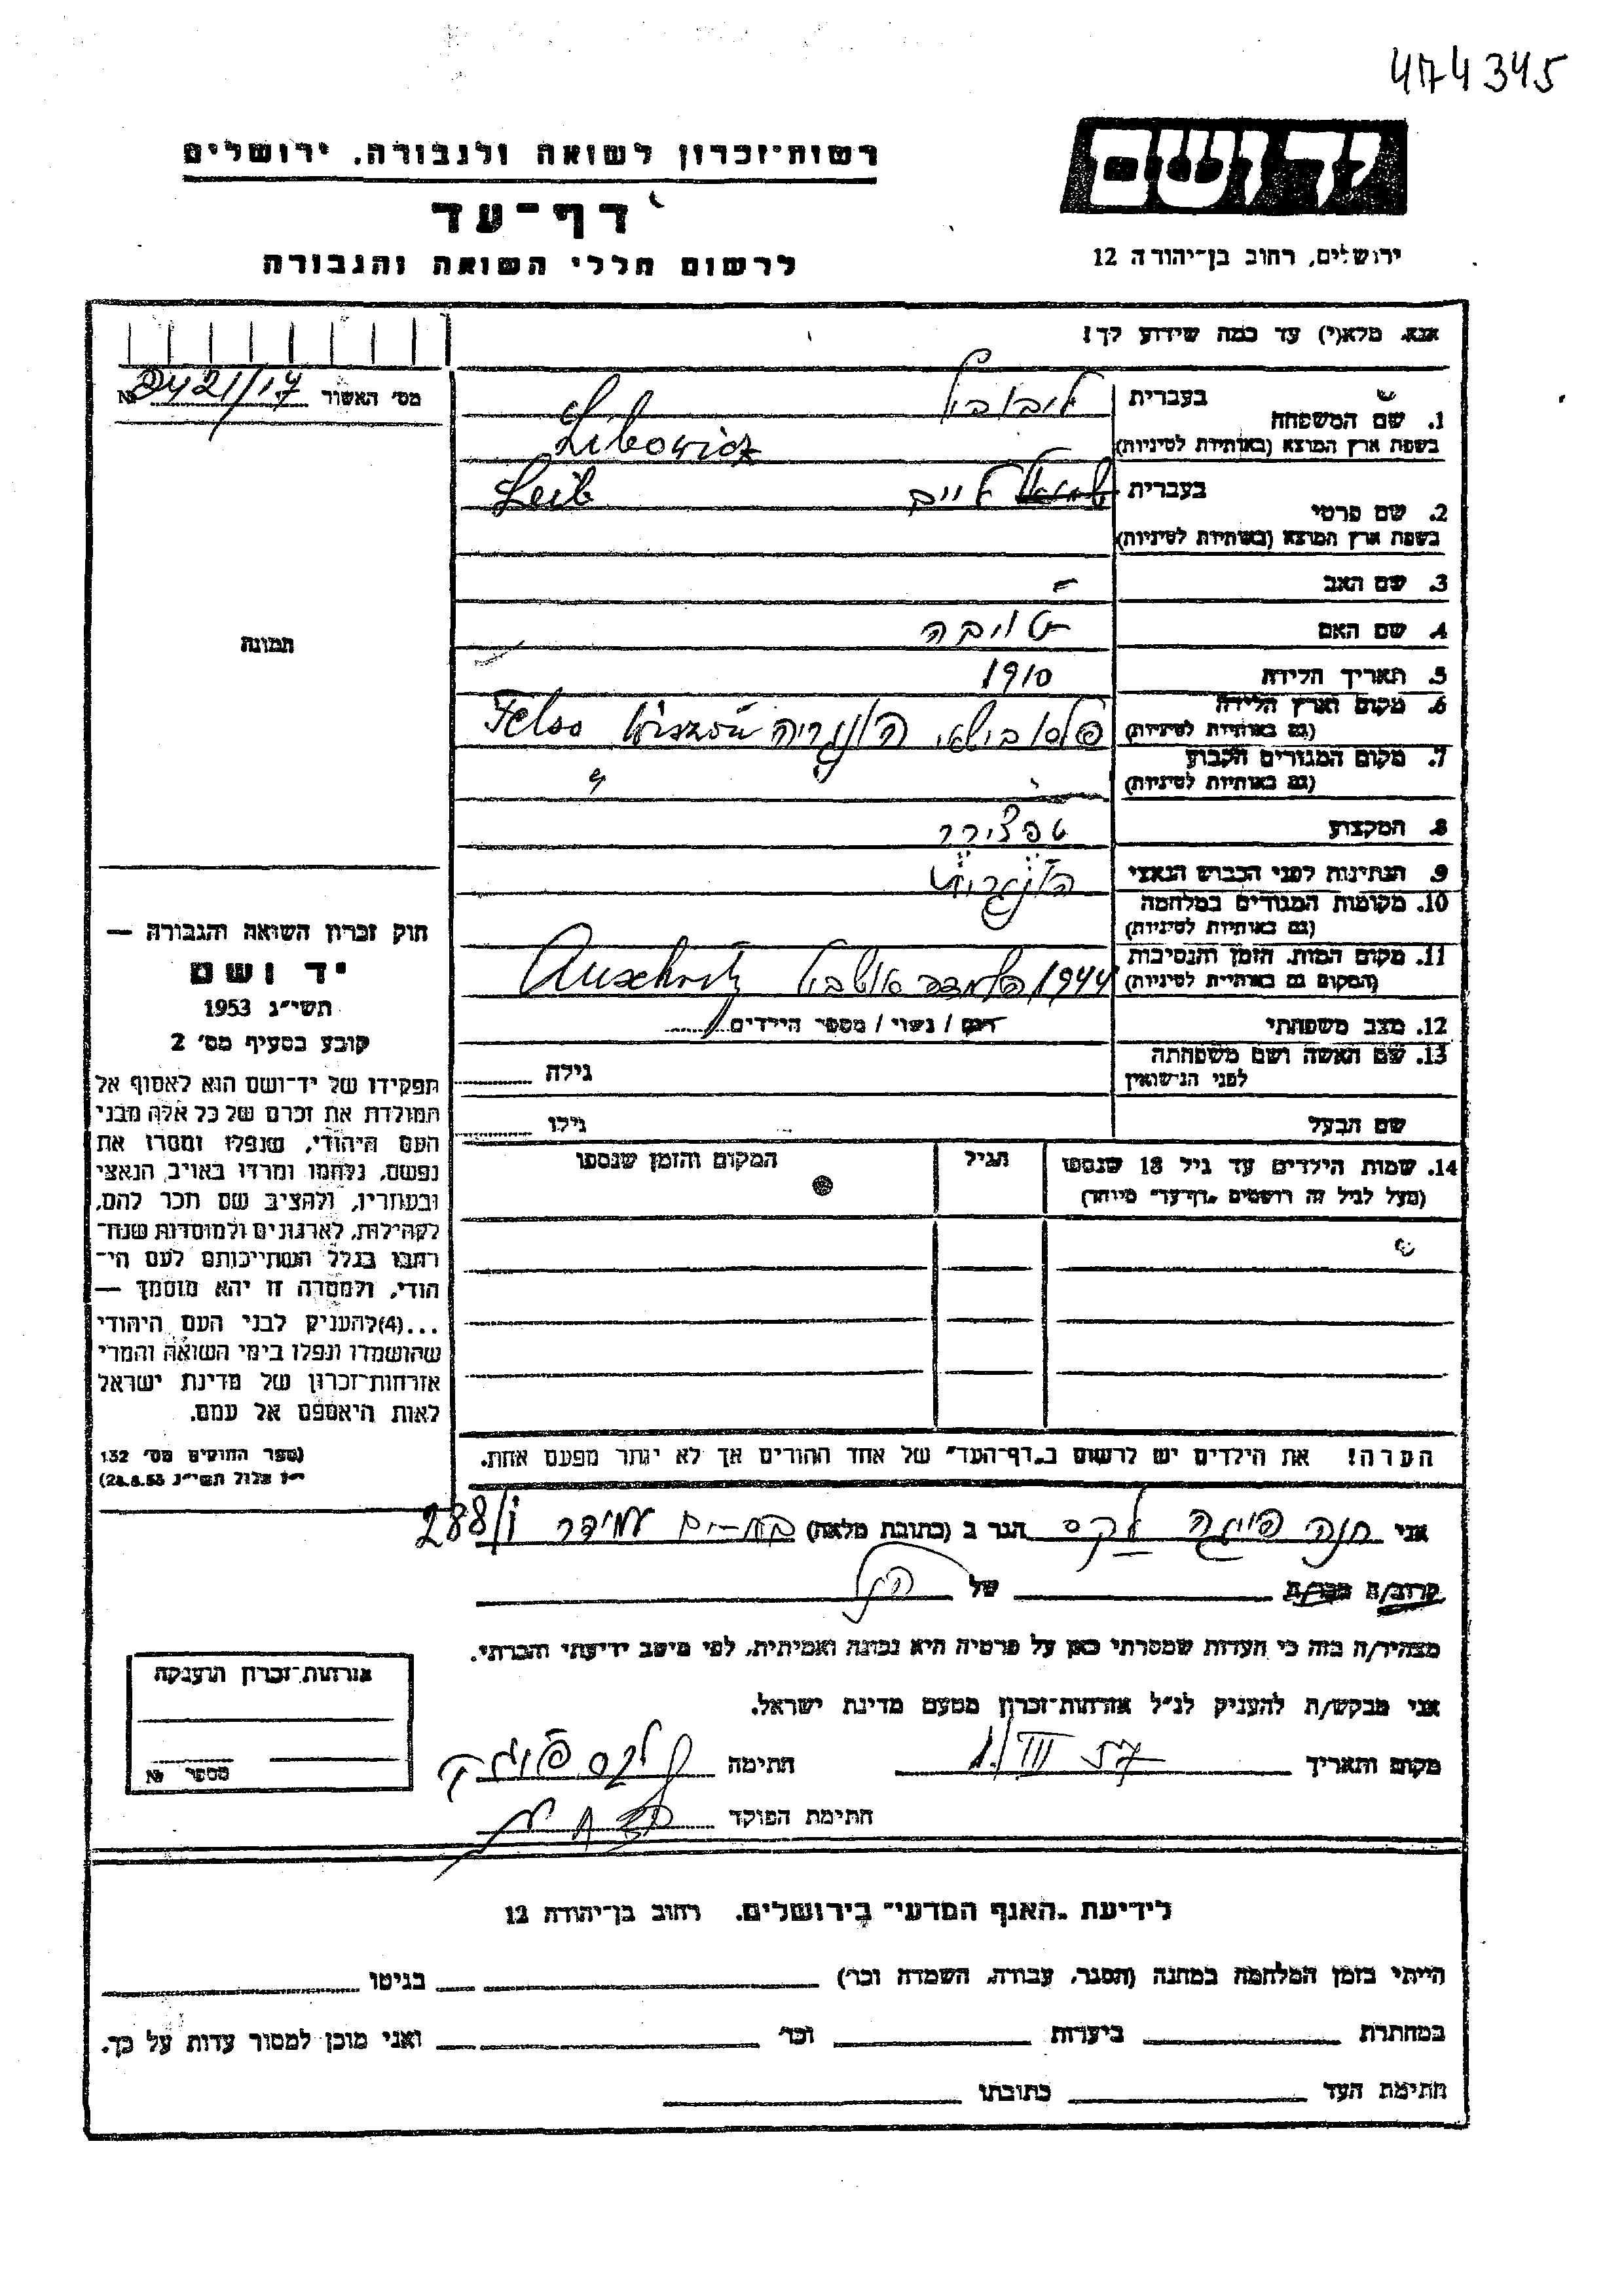 474345
יד ושם
רשות-זכרון לשואה ולגבורה, ירושלים
דף-עד
לרשום חללי השואה והגבורה
ירושלים, רחוב בן-יהודה 12
אנא, מלא(י) עד כמה שידוע לך!
מס' האשור 2421/17 №
1. שם המשפחה
בעברית ליבוביץ
בשפת ארץ המוצא (באותיות לטיניות) Libowicz
2. שם פרטי
בעברית לייב Leib
בשפת ארץ המוצא (באותיות לטיניות)
3. שם האב –
4. שם האם טויבה
5. תאריך הלידה 1910
6. מקום וארץ הלידה
(גם באותיות לטיניות) הונגריה Felso
7. מקום המגורים הקבוע
(גם באותיות לטיניות) "
8. המקצוע
9. הנתינות לפני הכבוש הנאצי הונגרית
10. מקומות המגורים במלחמה
(גם באותיות לטיניות)
11. מקום המות, הזמן והנסיבות
(המקום גם באותיות לטיניות) 1944
12. מצב משפחתי רוק / נשוי / מספר הילדים
13. שם האשה ושם משפחתה
לפני הנישואין
גילה
שם הבעל
גילו
14. שמות הילדים עד גיל 18 שנספו
(מעל לגיל זה רושמים "דף-עד" מיוחד)
הגיל
המקום והזמן שנספו
הערה! את הילדים יש לרשום ב"דף-העד" של אחד ההורים אך לא יותר מפעם אחת.
תמונה
חוק זכרון השואה והגבורה —
יד ושם
תשי"ג 1953
קובע בסעיף מס' 2
תפקידו של יד-ושם הוא לאסוף אל
המולדת את זכרם של כל אלה מבני
העם היהודי, שנפלו ומסרו את
נפשם, נלחמו ומרדו באויב הנאצי
ובעוזריו, ולהציב שם וזכר להם,
לקהילות, לארגונים ולמוסדות שנח־
רבו בגלל השתייכותם לעם הי־
הודי, ולמטרה זו יהא מוסמך —
...(4)להעניק לבני העם היהודי
שהושמדו ונפלו בימי השואה והמרי
אזרחות-זכרון של מדינת ישראל
לאות היאספם אל עמם.
(ספר החוקים מס' 132
י"ז אלול תשי"ג 28.8.53)
אני חנה פייגה לקס הגר ב (כתובת מלאה) בת-ים עמידר 288/ו
קרוב/ה מכר/ה של הנ"ל
מצהיר/ה בזה כי העדות שמסרתי כאן על פרטיה היא נכונה ואמיתית, לפי מיטב ידיעתי והכרתי.
אני מבקש/ת להעניק לנ"ל אזרחות-זכרון מטעם מדינת ישראל.
מקום ותאריך 1.III 57 חתימה לקס פייגה
חתימת הפוקד
אזרחות-זכרון הוענקה
מספר №
לידיעת "האגף המדעי" בירושלים, רחוב בן-יהודה 12
הייתי בזמן המלחמה במחנה (הסגר, עבודה, השמדה וכו') בגיטו
במחתרת ביערות וכו' ואני מוכן למסור עדות על כך.
חתימת העד כתובתו